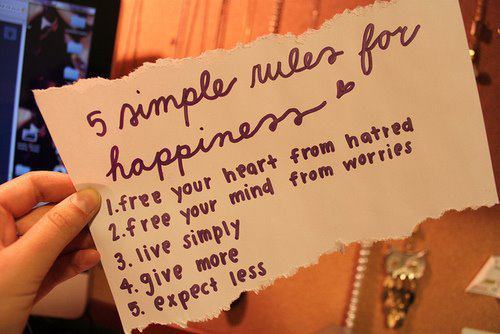 5 simple rules for
happiness
1. free your heart from hatred
2. free your mind from worries
3. live simply
4. give more
5. expect less